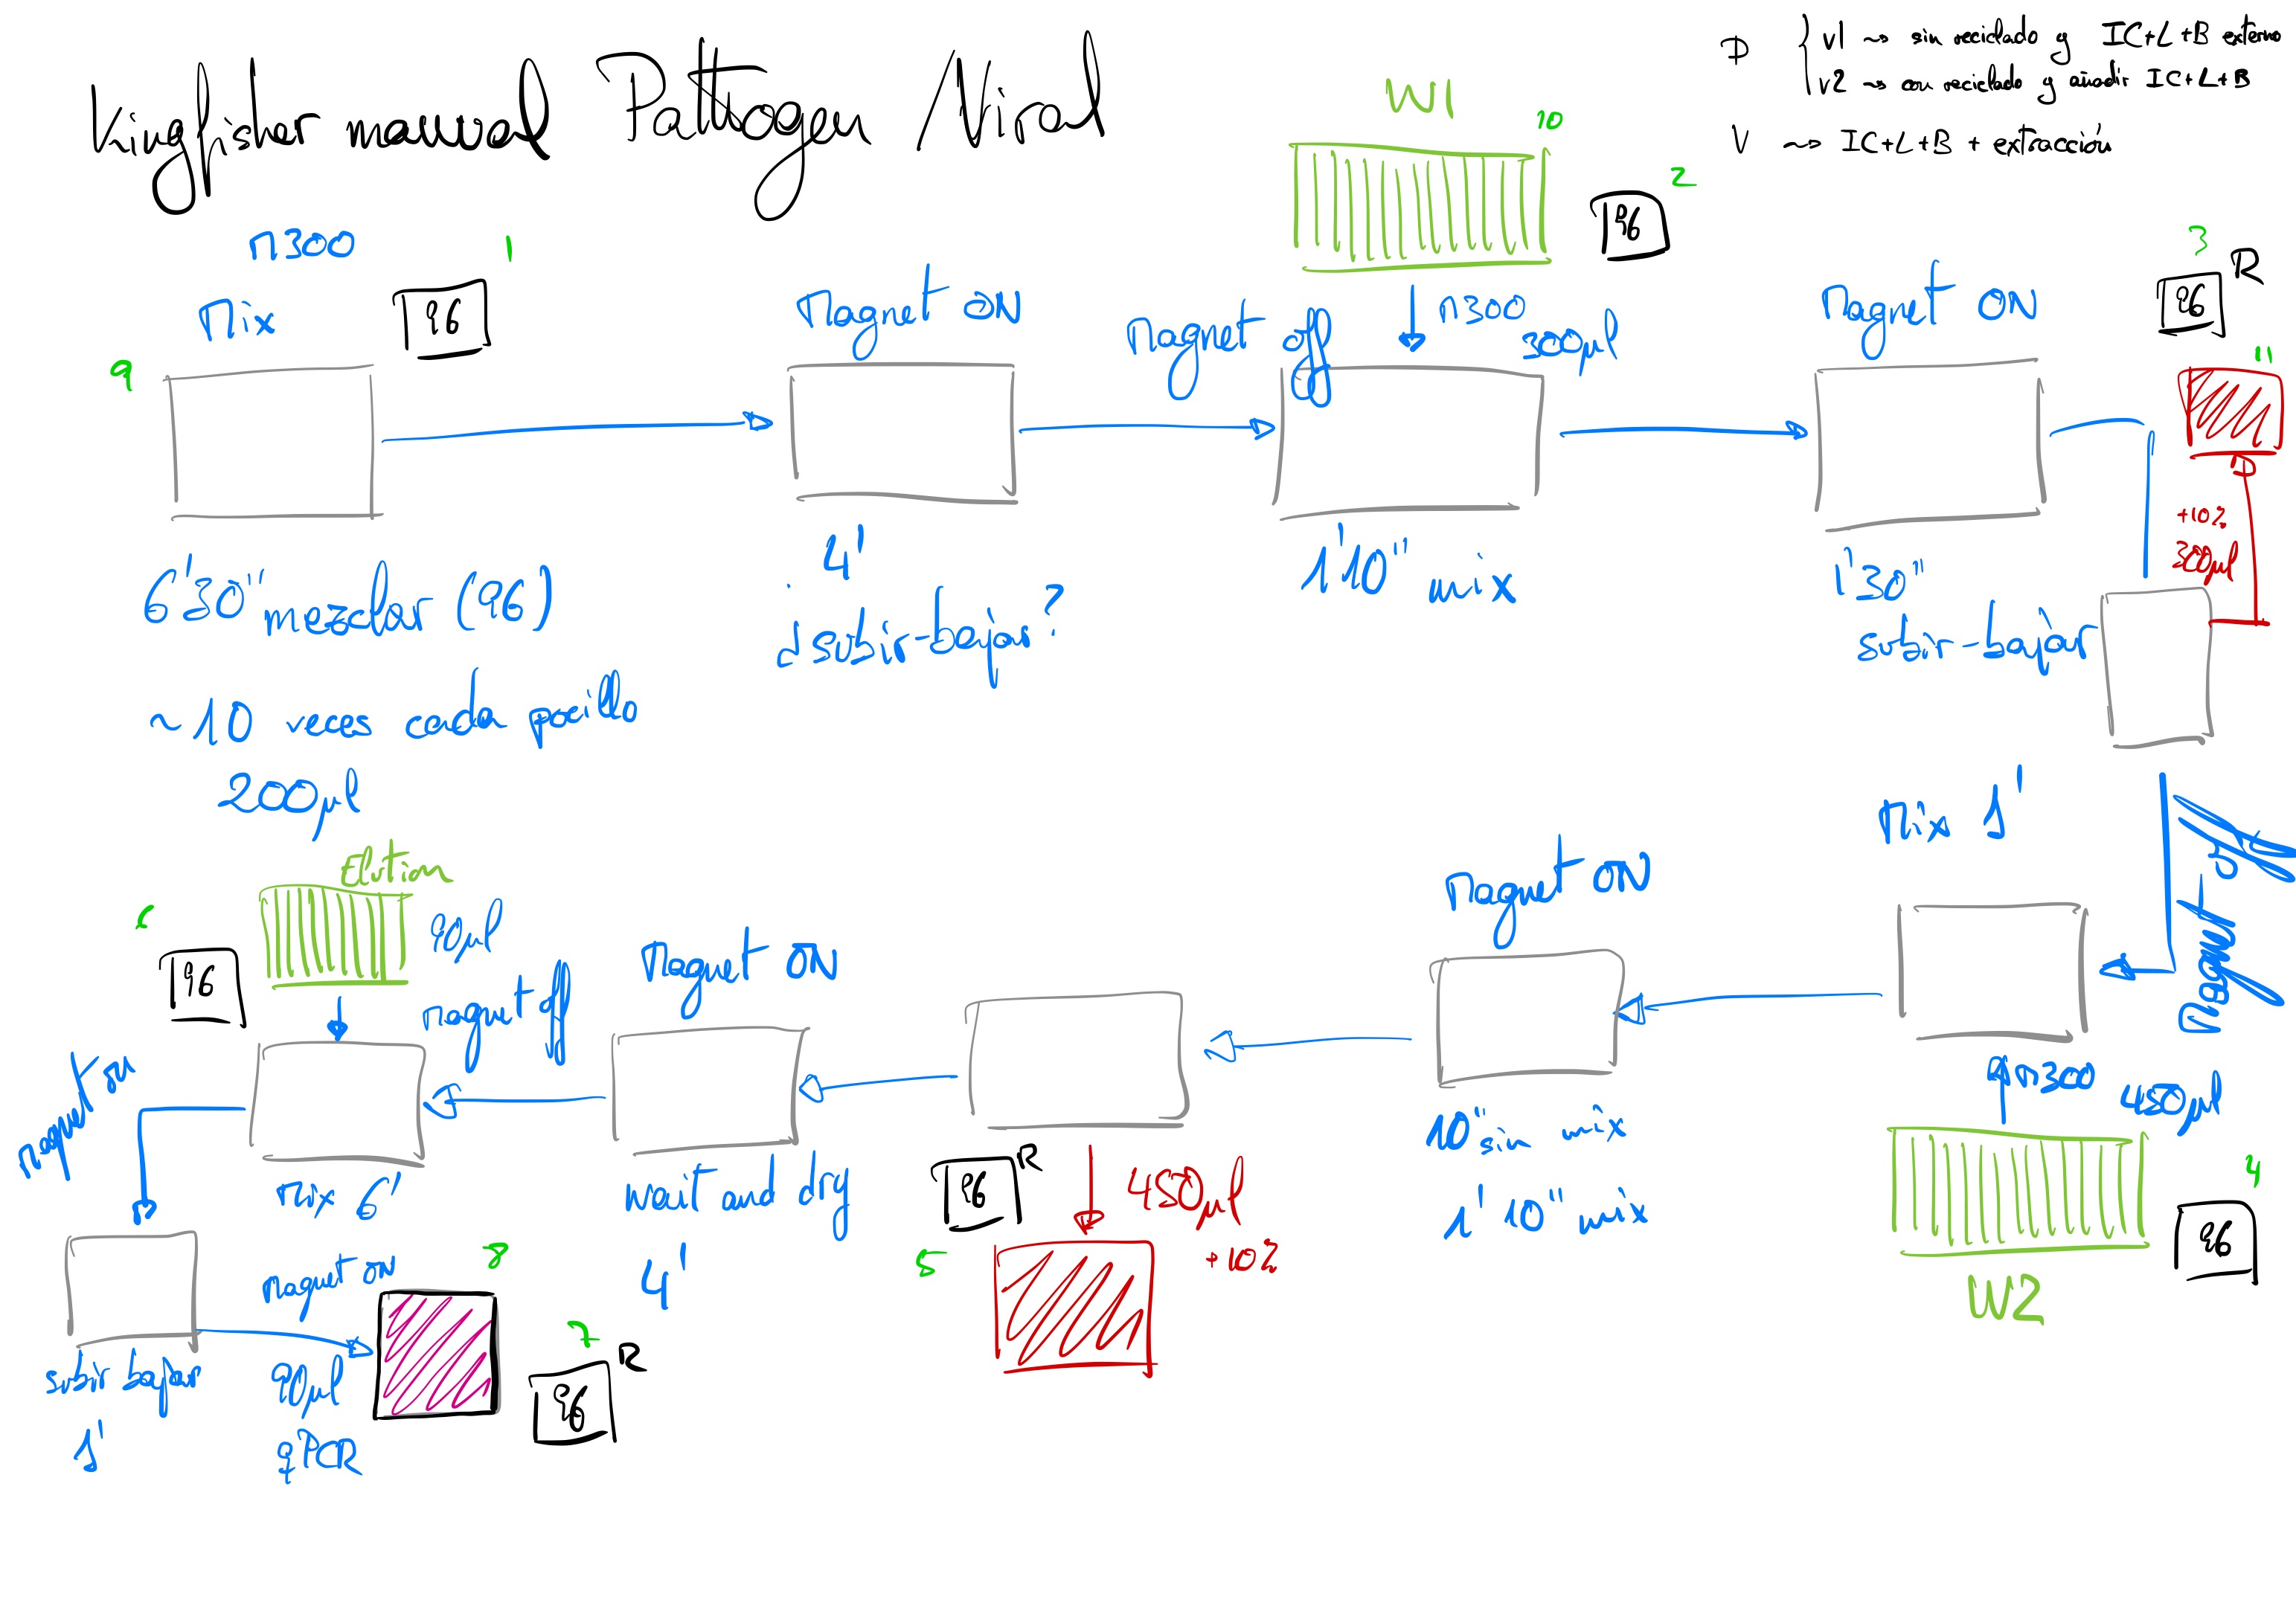 Kingfisher manual Pathogen Viral
D { v1 ~> sin reciclado y IC+L+B externo
v2 ~> con reciclado y añadir IC+L+B
V ~> IC+L+B + extracción
m300
1
Mix
96
9
6'30" mezclar (96)
~10 veces cada pocillo
200µl
Magnet ON
4'
¿subir-bajar?
W1
10
96
2
Magnet off
m300
300µl
1'10" mix
Magnet ON
1'30"
subir-bajar
3
96 R
11
+10%
300µl
Magnet off
Mix 1'
m300
450µl
W2
4
96
Magnet ON
10" sin mix
1'10" mix
96 R
5
450µl
+10%
Magnet ON
wait and dry
4'
Elution
90µl
6
96
magnet off
mix 6'
magnet on
subir bajar
1'
magnet ON
90µl
qPCR
8
7
96 R